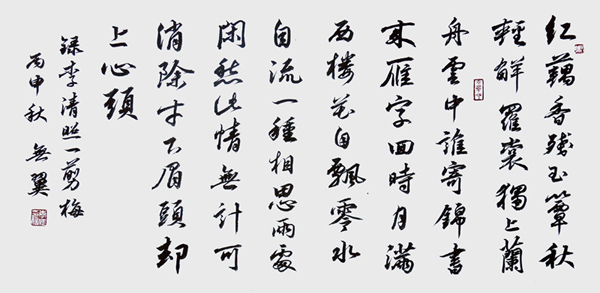 红藕香残玉簟秋
輕解羅裳獨上蘭
舟雲中誰寄錦書
来雁字回時月滿
西楼花自飄零水
自流一種相思兩處
閑愁此情無計可
消除才下眉頭却
上心頭
録李清照一剪梅
丙申秋 無翼